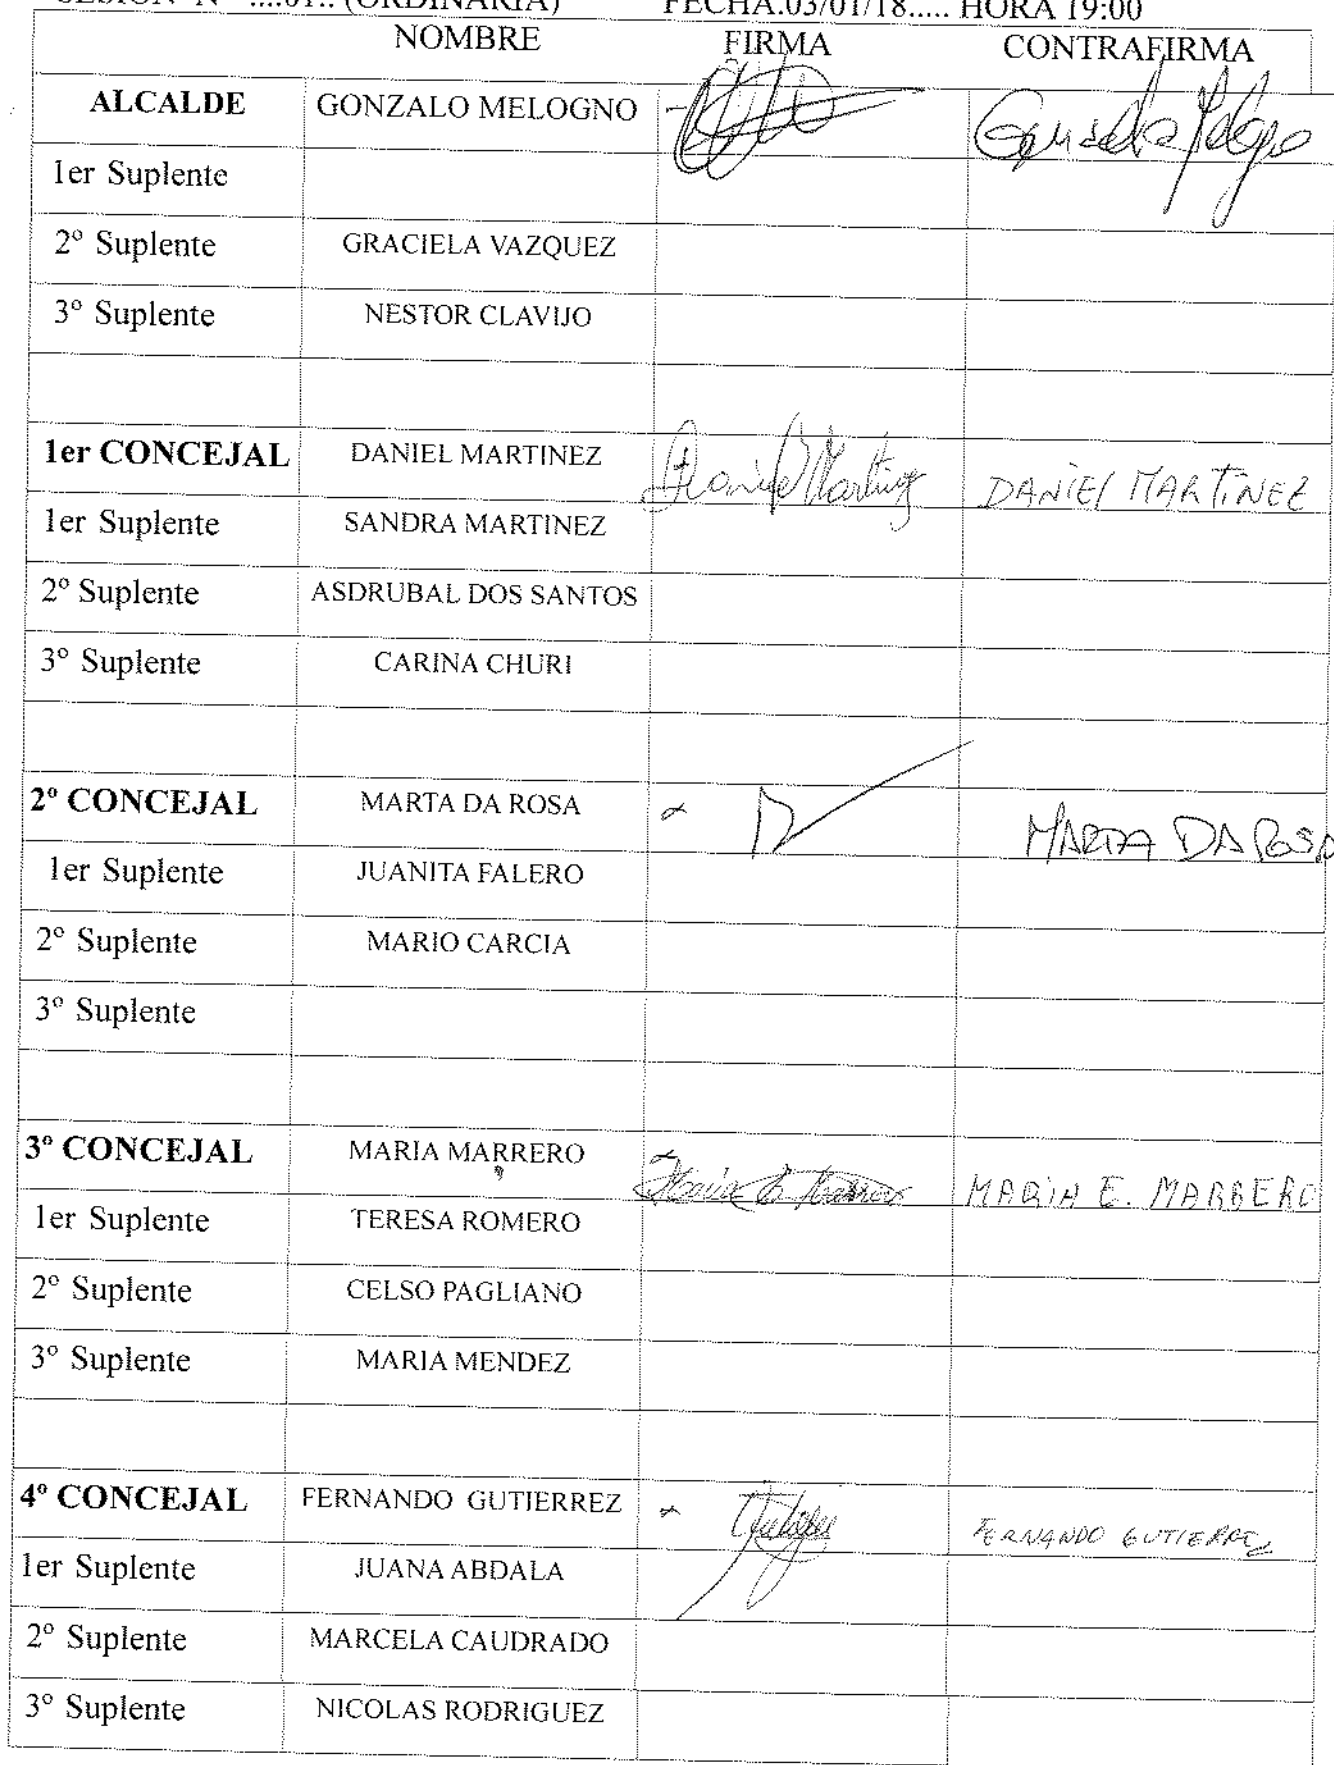 SESION Nº ....01.. (ORDINARIA) FECHA.03/01/18..... HORA 19:00
NOMBRE FIRMA CONTRAFIRMA
ALCALDE GONZALO MELOGNO
1er Suplente
2º Suplente GRACIELA VAZQUEZ
3º Suplente NESTOR CLAVIJO
1er CONCEJAL DANIEL MARTINEZ Daniel Martinez DANIEL MARTINEZ
1er Suplente SANDRA MARTINEZ
2º Suplente ASDRUBAL DOS SANTOS
3º Suplente CARINA CHURI
2º CONCEJAL MARTA DA ROSA MARTA DA ROSA
1er Suplente JUANITA FALERO
2º Suplente MARIO CARCIA
3º Suplente
3º CONCEJAL MARIA MARRERO Maria E. Marrero MARIA E. MARRERO
1er Suplente TERESA ROMERO
2º Suplente CELSO PAGLIANO
3º Suplente MARIA MENDEZ
4º CONCEJAL FERNANDO GUTIERREZ FERNANDO GUTIERREZ
1er Suplente JUANA ABDALA
2º Suplente MARCELA CAUDRADO
3º Suplente NICOLAS RODRIGUEZ